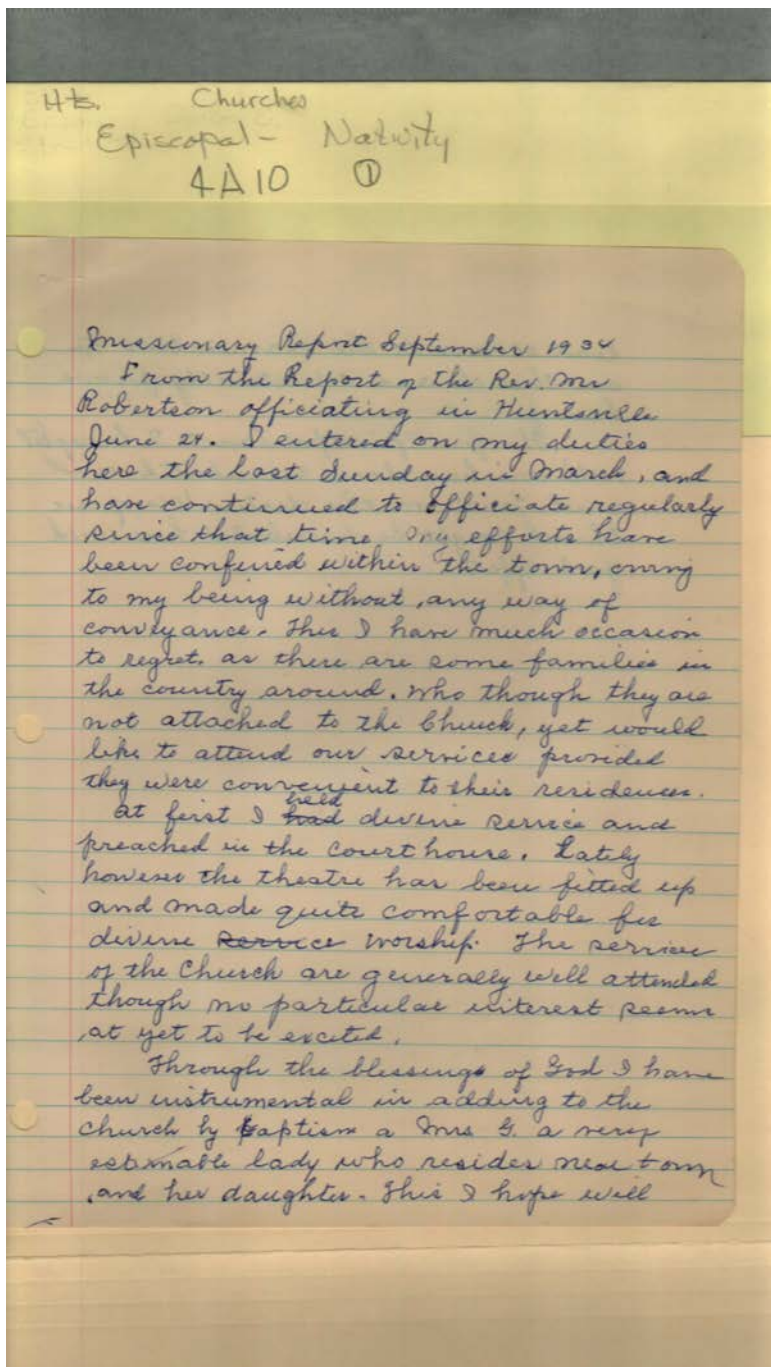 Hts. Churches
Episcopal - Nativity
4A10 ①
Missionary Report September 1934
From the Report of the Rev. Mr
Robertson officiating in Huntsville
June 24. I entered on my duties
here the last Sunday in March, and
have continued to officiate regularly
since that time. My efforts have
been confined within the town, owing
to my being without, any way of
conveyance. This I have much occasion
to regret. as there are some families in
the country around. Who though they are
not attached to the Church, yet would
like to attend our services provided
they were convenient to their residences.
At first I had held divine service and
preached in the courthouse. Lately
however the theatre has been fitted up
and made quite comfortable for
divine service worship. The services
of the Church are generally well attended
though no particular interest seems
at yet to be excited.
Through the blessings of God I have
been instrumental in adding to the
church by baptism a Mrs G. a very
estimable lady who resides near town
and her daughter. This I hope will